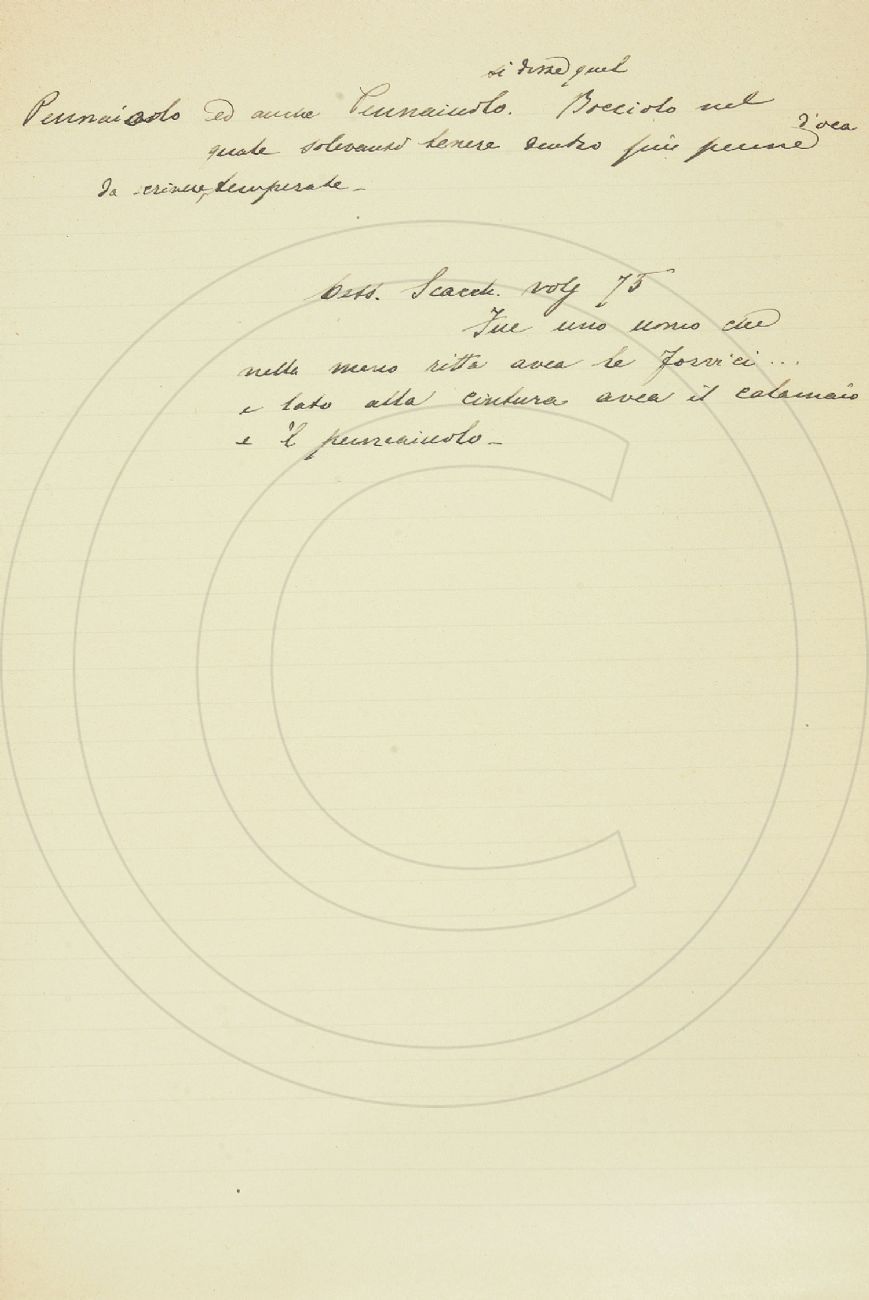 si disse quel
Pennaiolo ed anche Pennaiuolo. Bocciolo nel
d'oca
quale solevansi tenere dentro più penne
da scrivere, temperate _
Cess. Scacch. volg 75
Fue uno uomo che
nella mano ritta avea le forvici ...
e lato alla cintura avea il calamaio
e 'l pennaiuolo _